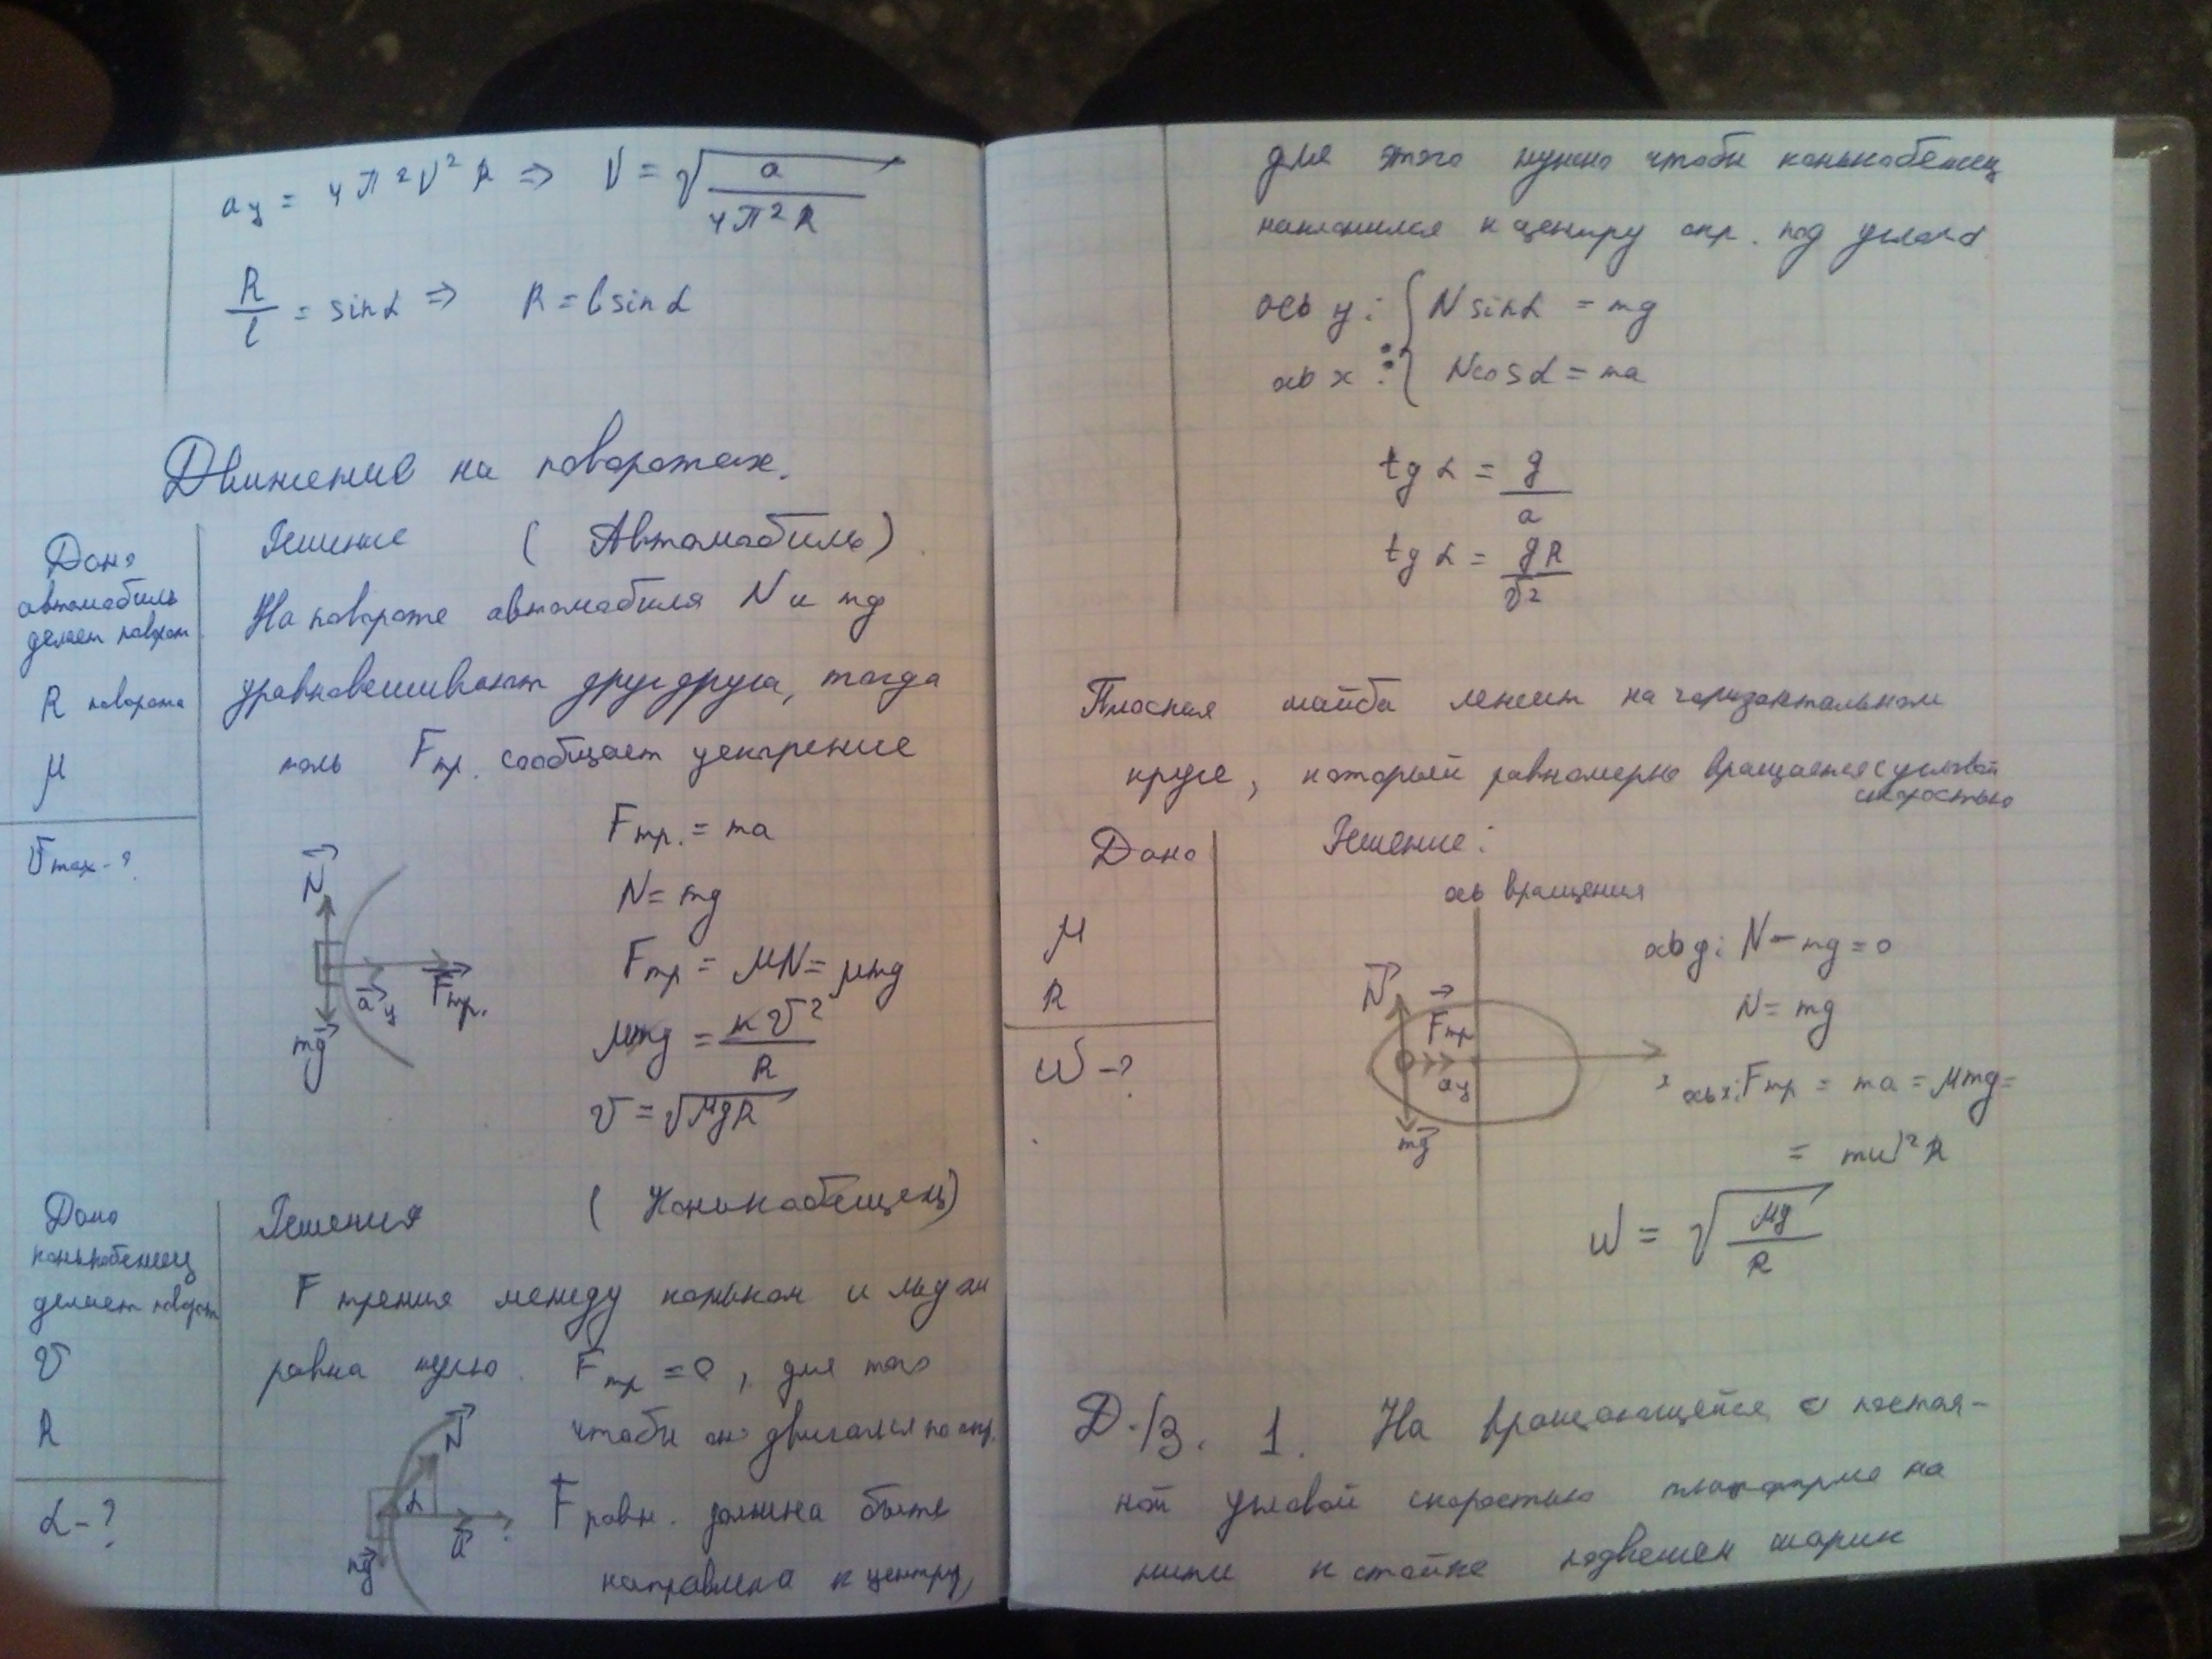 a_ц = 4π²ν²R ⇒ ν = √(a / 4π²R)
R/l = sinα ⇒ R = l sinα
Движение на поворотах.
Дано
автомобиль
делает поворот
R поворота
μ
υmax - ?
Решение ( Автомобиль)
На повороте автомобиля N и mg
уравновешивают друг друга, тогда
Fтр. сообщает ускорение
Fтр. = ma
N = mg
Fтр = μN = μmg
μmg = mυ²/R
υ = √μgR
N
a_ц
Fтр.
mg
Дано
конькобежец
делает поворот
υ
R
α - ?
Решения ( Конькобещец)
F трения между коньком и льдом
равна нулю. Fтр = 0, для того
чтобы он двигался по окр.
F равн. должна быть
направлена к центру,
N
α
a
mg
для этого нужно чтобы конькобежец
наклонился к центру окр. под углом α
ось y: { N sinα = mg
ось x: { N cosα = ma
tg α = g/a
tg α = gR/υ²
Плоская шайба лежит на горизонтальном
круге, который равномерно вращается с угловой
скоростью
Дано
μ
R
ω - ?
Решение:
ось вращения
N
Fтр
a_ц
mg
x
ось y: N - mg = 0
N = mg
ось x: Fтр = ma = μmg =
= mω²R
ω = √(μg/R)
Д./З. 1. На вращающейся с постоя-
ной угловой скоростью платформе на
нити к стойке подвешен шарик